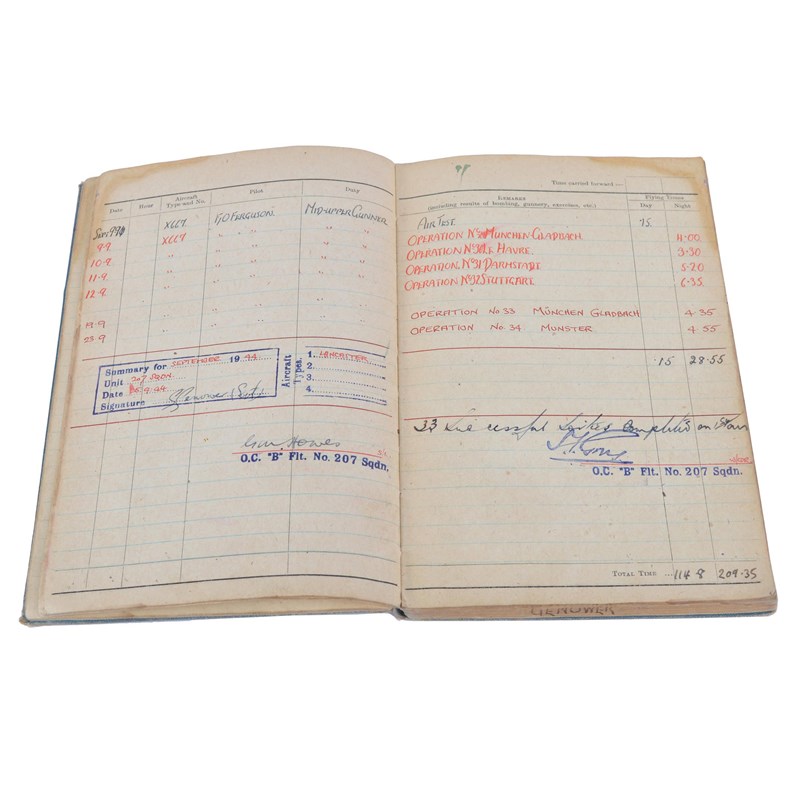 Date Hour Aircraft Type and No. Pilot Duty
Sept 9th XCC7 F/O FERGUSON. MID-UPPER GUNNER
9.9 XCC7 " " " "
10.9 " " " "
11.9 " " " "
12.9 " " " "
19.9 " " " "
23.9 " " " "
Summary for SEPTEMBER 1944
Unit 207 SQDN.
Date
Signature
Aircraft Types.
1. LANCASTER
2.
3.
4.
O.C. "B" Flt. No. 207 Sqdn.
Time carried forward:—
REMARKS Flying Times
(including results of bombing, gunnery, exercises, etc.) Day Night
AIR TEST .15
OPERATION No MÜNCHEN GLADBACH. 4.00
OPERATION No LE HAVRE. 3.30
OPERATION No 31 DARMSTADT 5.20
OPERATION No 32 STUTTGART. 6.35
OPERATION No 33 MÜNCHEN GLADBACH 4.35
OPERATION No. 34 MUNSTER 4.55
.15 28.55
33 Successful Strikes Completed on
O.C. "B" Flt. No. 207 Sqdn.
TOTAL TIME ... 114 8 209.35
GENOWER